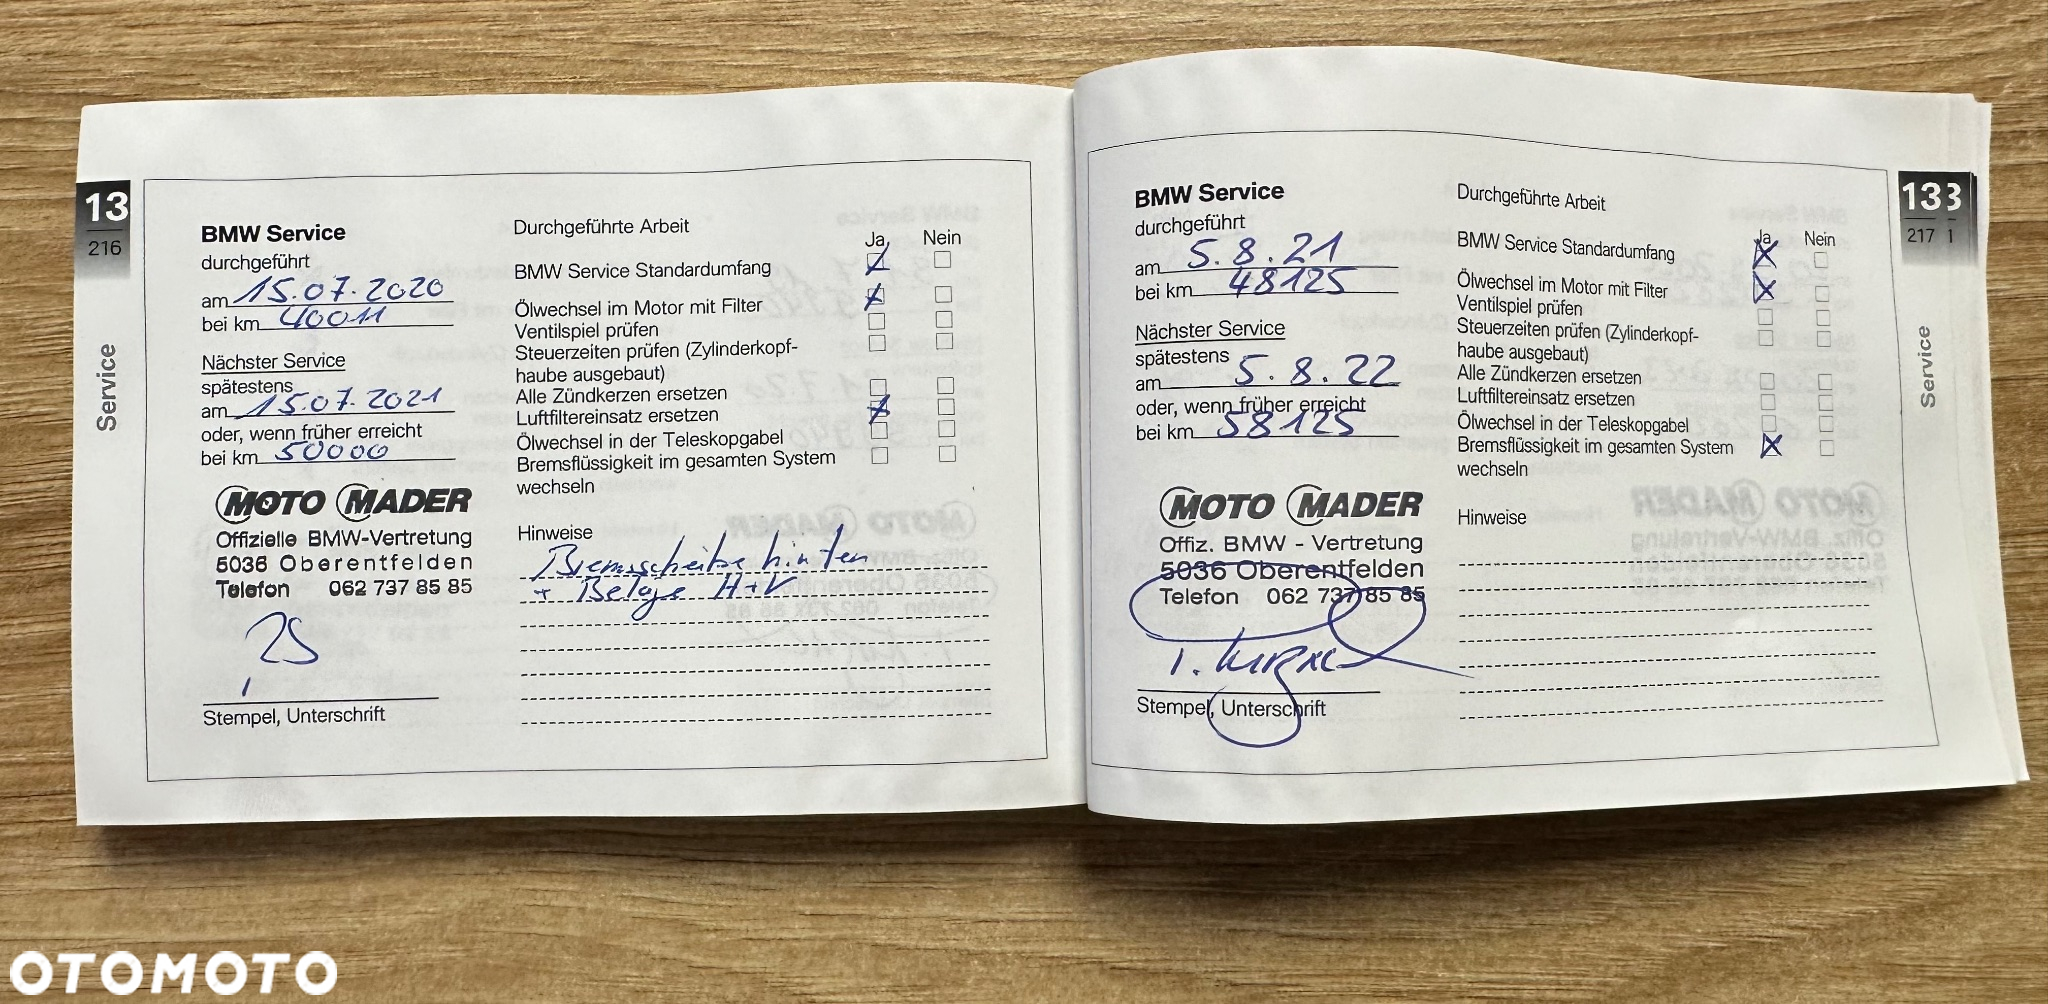 13
216
Service
BMW Service
durchgeführt
am 15.07.2020
bei km 40011
Nächster Service
spätestens
am 15.07.2021
oder, wenn früher erreicht
bei km 50000
MOTO MADER
Offizielle BMW-Vertretung
5036 Oberentfelden
Telefon 062 737 85 85
Stempel, Unterschrift
Durchgeführte Arbeit
Ja Nein
BMW Service Standardumfang
Ölwechsel im Motor mit Filter
Ventilspiel prüfen
Steuerzeiten prüfen (Zylinderkopf-
haube ausgebaut)
Alle Zündkerzen ersetzen
Luftfiltereinsatz ersetzen
Ölwechsel in der Teleskopgabel
Bremsflüssigkeit im gesamten System
wechseln
Hinweise
Bremsscheibe hinten
+ Beläge H+V
BMW Service
durchgeführt
am 5.8.21
bei km 48125
Nächster Service
spätestens
am 5.8.22
oder, wenn früher erreicht
bei km 58125
MOTO MADER
Offiz. BMW - Vertretung
5036 Oberentfelden
Telefon 062 737 85 85
Stempel, Unterschrift
Durchgeführte Arbeit
Ja Nein
BMW Service Standardumfang
Ölwechsel im Motor mit Filter
Ventilspiel prüfen
Steuerzeiten prüfen (Zylinderkopf-
haube ausgebaut)
Alle Zündkerzen ersetzen
Luftfiltereinsatz ersetzen
Ölwechsel in der Teleskopgabel
Bremsflüssigkeit im gesamten System
wechseln
Hinweise
13 3
217 1
Service
OTOMOTO